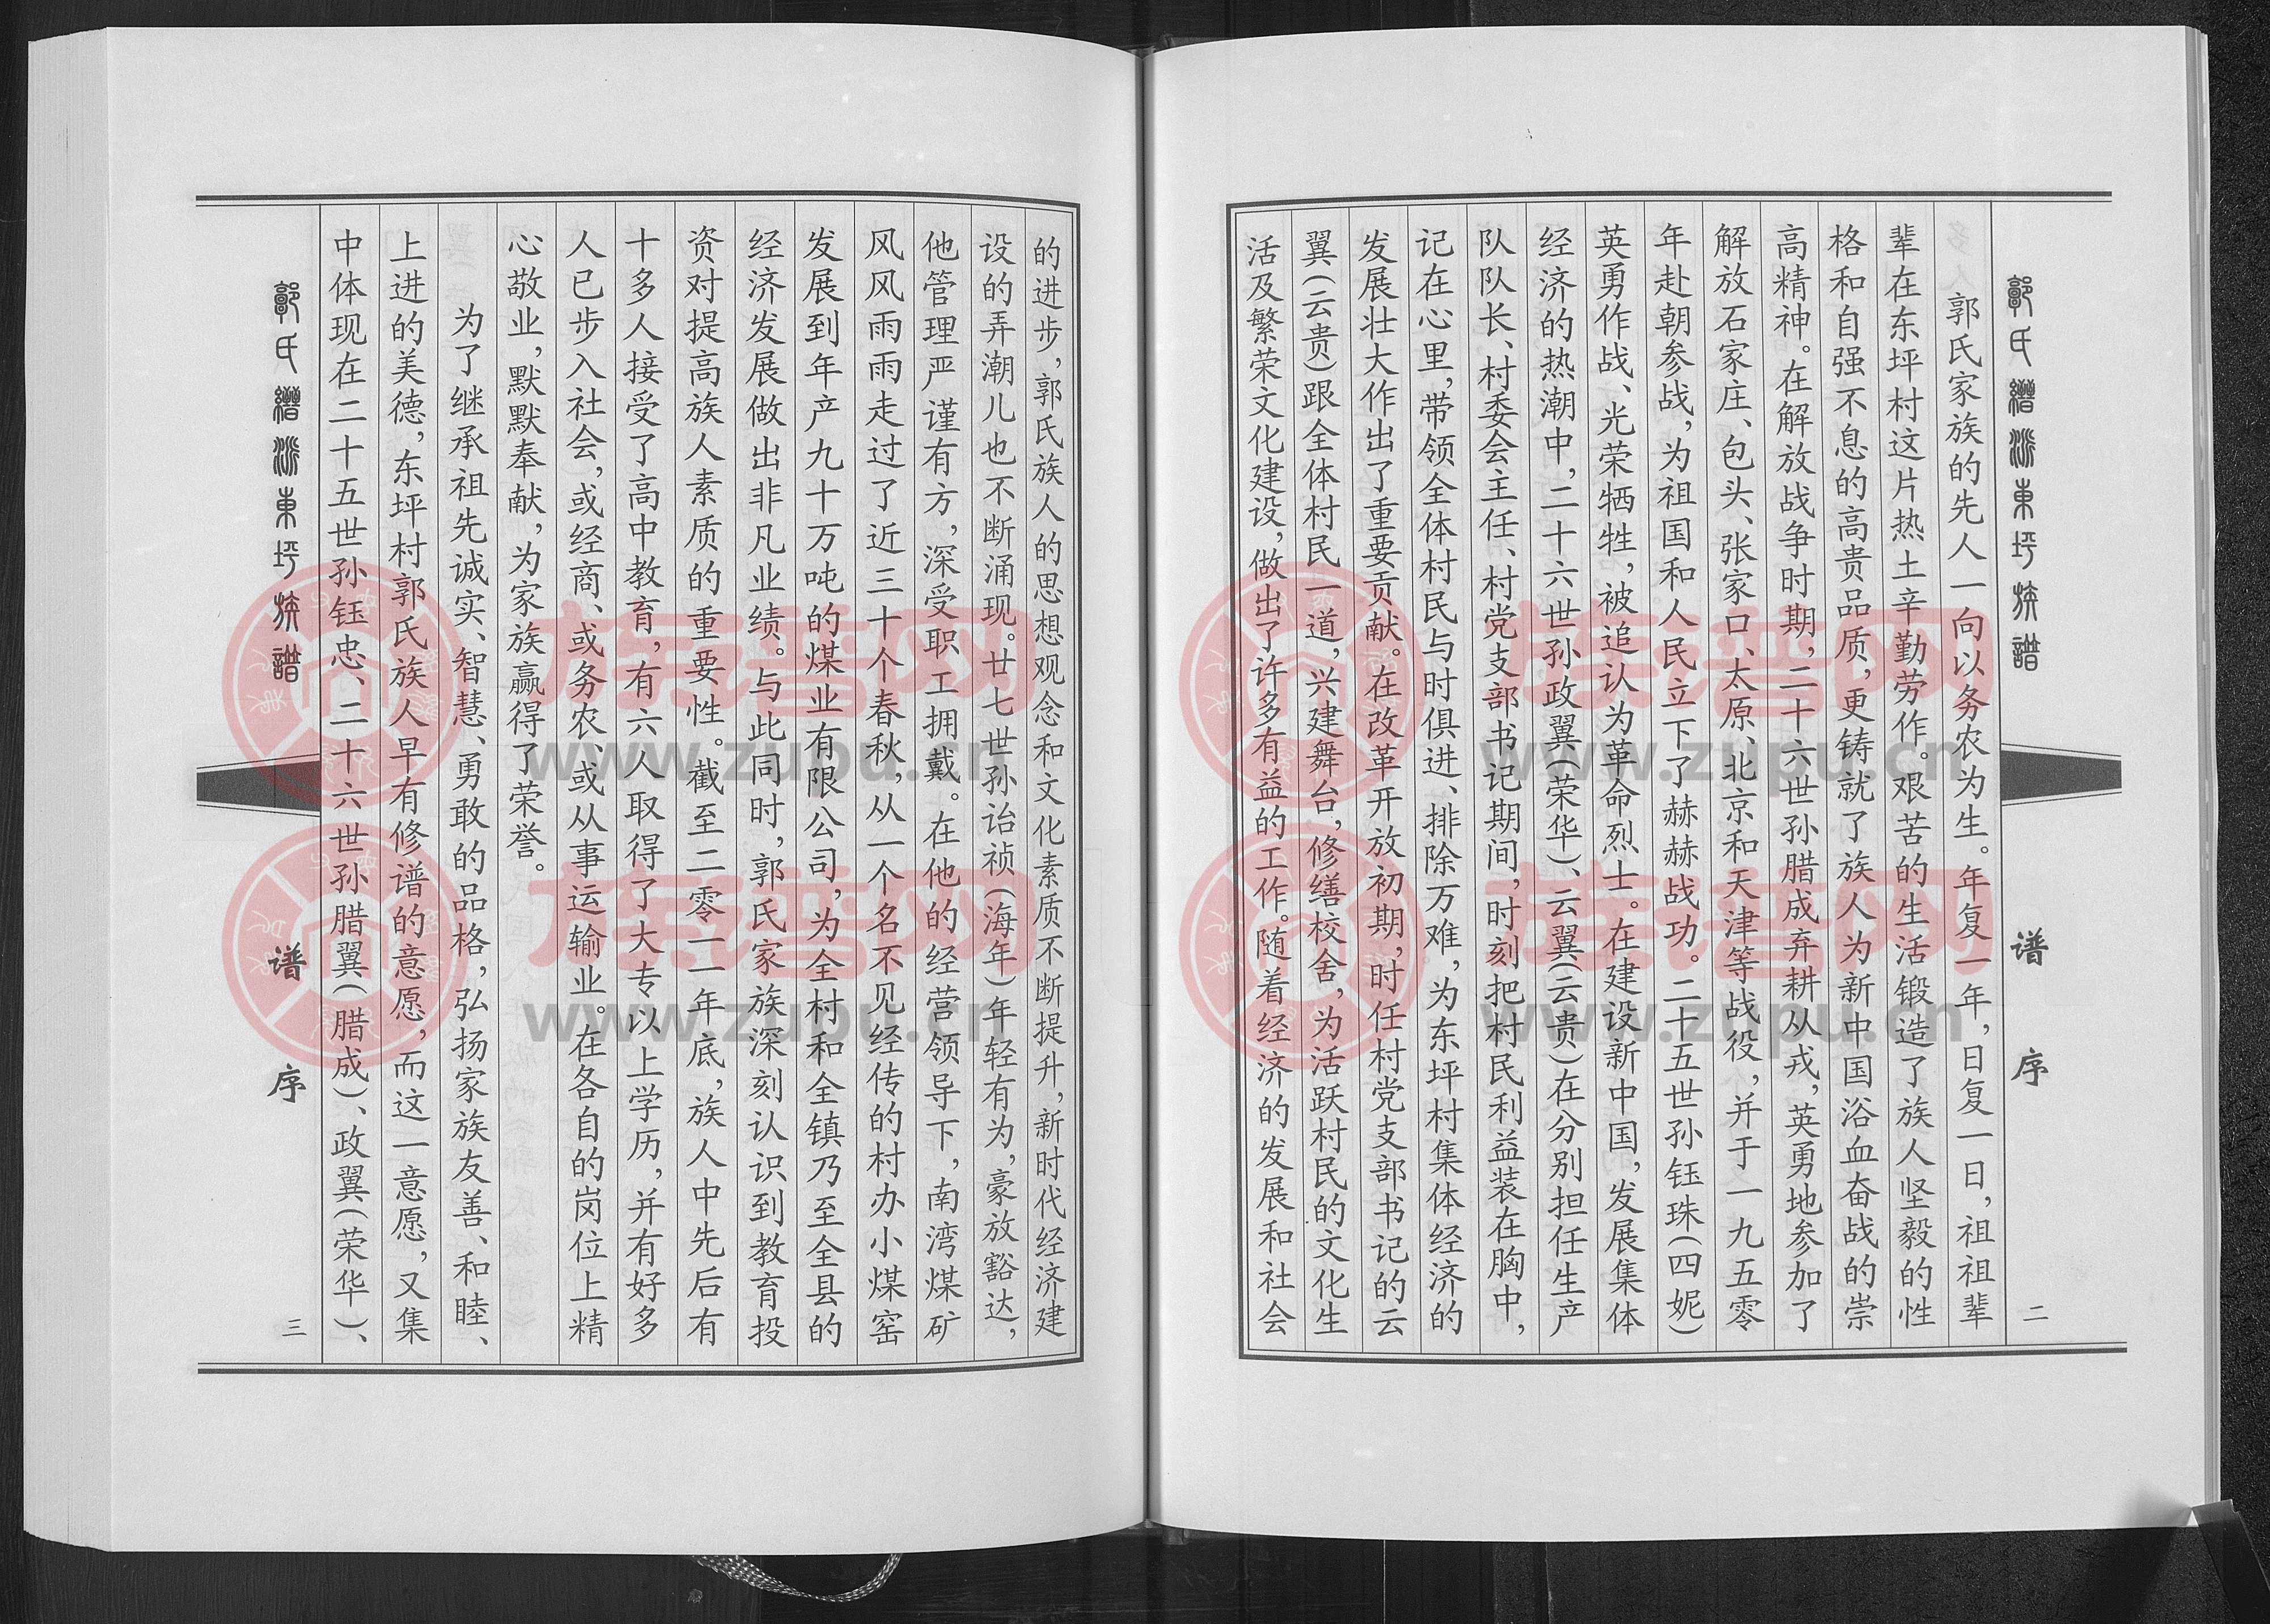 郭氏缙派东坪族谱
谱序
二
郭氏家族的先人一向以务农为生。年复一年，日复一日，祖祖辈
辈在东坪村这片热土辛勤劳作。艰苦的生活锻造了族人坚毅的性
格和自强不息的高贵品质，更铸就了族人为新中国浴血奋战的崇
高精神。在解放战争时期，二十六世孙腊成弃耕从戎，英勇地参加了
解放石家庄、包头、张家口、太原、北京和天津等战役，并于一九五零
年赴朝参战，为祖国和人民立下了赫赫战功。二十五世孙钰珠(四妮)
英勇作战、光荣牺牲，被追认为革命烈士。在建设新中国，发展集体
经济的热潮中，二十六世孙政翼(荣华)、云翼(云贵)在分别担任生产
队队长、村委会主任、村党支部书记期间，时刻把村民利益装在胸中，
记在心里，带领全体村民与时俱进、排除万难，为东坪村集体经济的
发展壮大作出了重要贡献。在改革开放初期，时任村党支部书记的云
翼(云贵)跟全体村民一道，兴建舞台，修缮校舍，为活跃村民的文化生
活及繁荣文化建设，做出了许多有益的工作。随着经济的发展和社会
的进步，郭氏族人的思想观念和文化素质不断提升，新时代经济建
设的弄潮儿也不断涌现。廿七世孙诒祯(海年)年轻有为，豪放豁达，
他管理严谨有方，深受职工拥戴。在他的经营领导下，南湾煤矿
风风雨雨走过了近三十个春秋，从一个名不见经传的村办小煤窑
发展到年产九十万吨的煤业有限公司，为全村和全镇乃至全县的
经济发展做出非凡业绩。与此同时，郭氏家族深刻认识到教育投
资对提高族人素质的重要性。截至二零一一年底，族人中先后有
十多人接受了高中教育，有六人取得了大专以上学历，并有好多
人已步入社会，或经商、或务农、或从事运输业。在各自的岗位上精
心敬业，默默奉献，为家族赢得了荣誉。
为了继承祖先诚实、智慧、勇敢的品格，弘扬家族友善、和睦、
上进的美德，东坪村郭氏族人早有修谱的意愿，而这一意愿，又集
中体现在二十五世孙钰忠、二十六世孙腊翼(腊成)、政翼(荣华)、
郭氏缙派东坪族谱
谱序
三
族谱网
www.zupu.cn
族谱网
www.zupu.cn
族谱网
www.zupu.cn
族谱网
www.zupu.cn